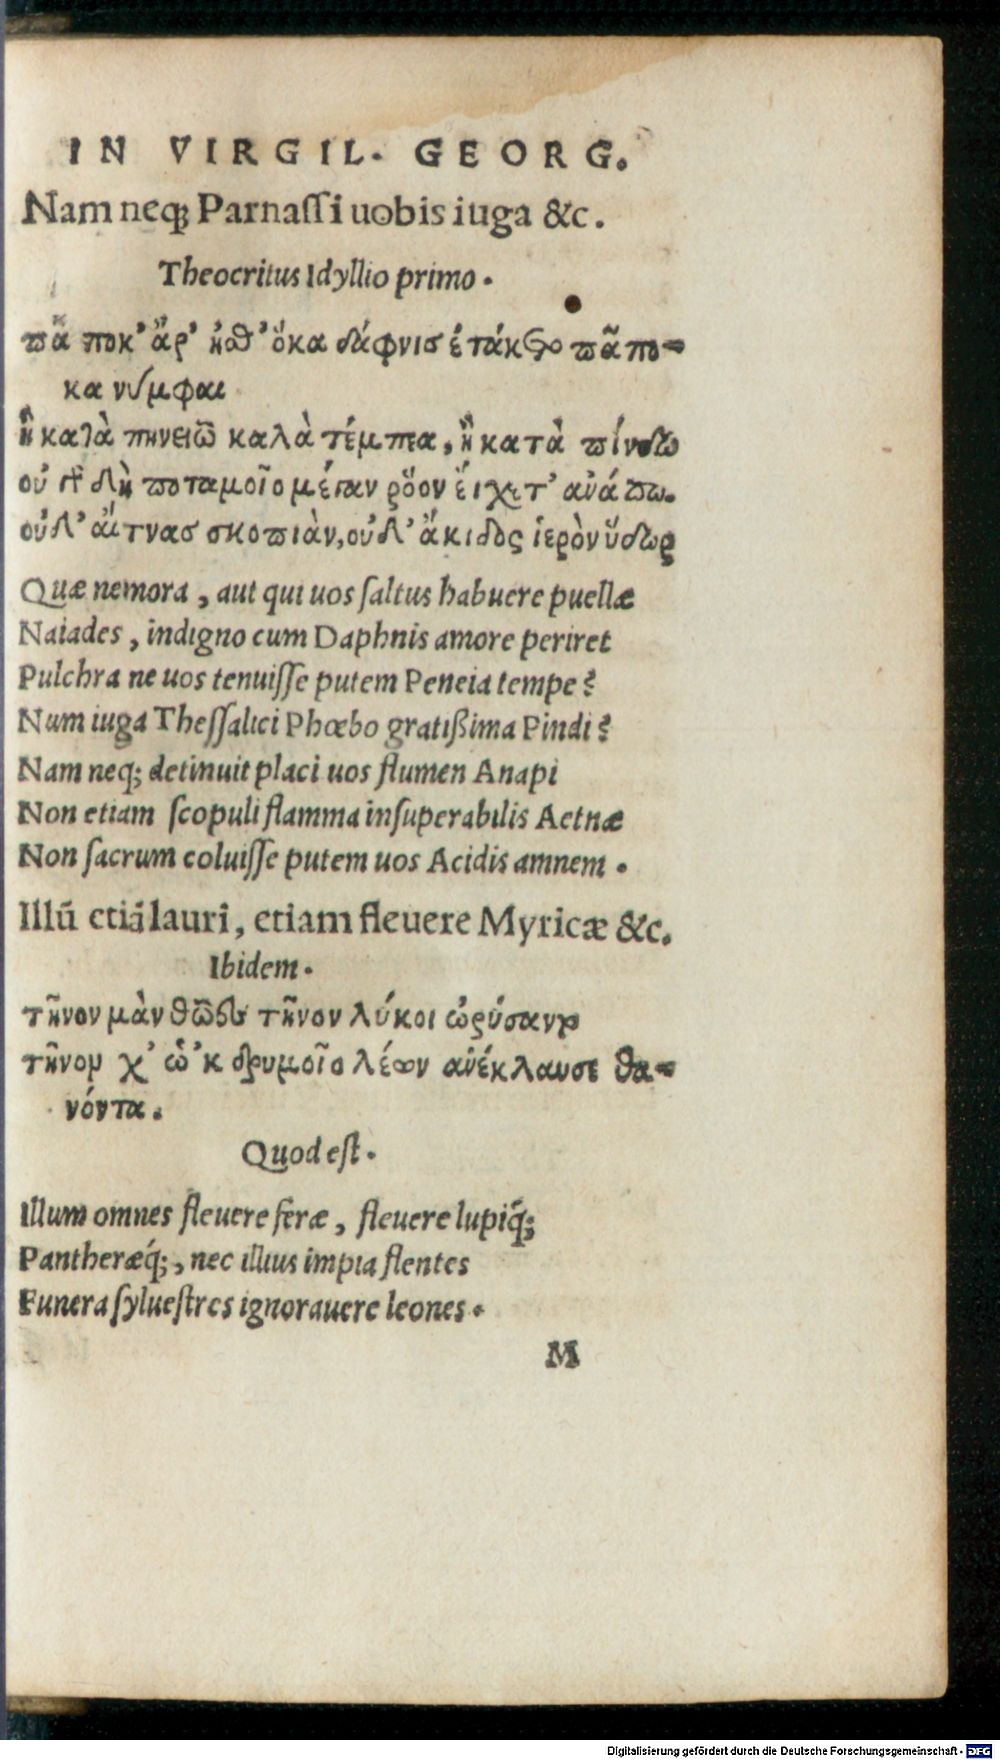 IN VIRGIL. GEORG.
Nam neq; Parnassi uobis iuga &c.
Theocritus Idyllio primo.
πᾶ ποκ’ ἂρ’ ἦθ’ ὅκα δάφνισ ἐτάκετο πᾶ πο-
κα νύμφαι
ἢ κατὰ πηνειῶ καλὰ τέμπεα, ἢ κατὰ πίνδω
οὐ γὰρ δὴ ποταμοῖο μέγαν ῥόον εἴχετ’ ἀνάπω.
οὐδ’ αἴτνασ σκοπιὰν, οὐδ’ ἄκιδος ἱερὸν ὕδωρ
Quæ nemora, aut qui uos ſaltus habuere puellæ
Naiades, indigno cum Daphnis amore periret
Pulchra ne uos tenuiſſe putem Peneia tempe?
Num iuga Theſſalici Phœbo gratißima Pindi?
Nam neq; detinuit placi uos flumen Anapi
Non etiam ſcopuli flamma inſuperabilis Aetnæ
Non ſacrum coluiſſe putem uos Acidis amnem.
Illũ etiã lauri, etiam fleuere Myricæ &c.
Ibidem.
τῆνον μὰν θῶεσ τῆνον λύκοι ὠρύσαντο
τῆνον χ’ ὡ’κ δρυμοῖο λέων ἀνέκλαυσε θα-
νόντα.
Quod eſt.
Illum omnes fleuere feræ, fleuere lupiq́;
Pantheræq́;, nec illius impia flentes
Funera ſylueſtres ignorauere leones.
M
Digitalisierung gefördert durch die Deutsche Forschungsgemeinschaft - DFG